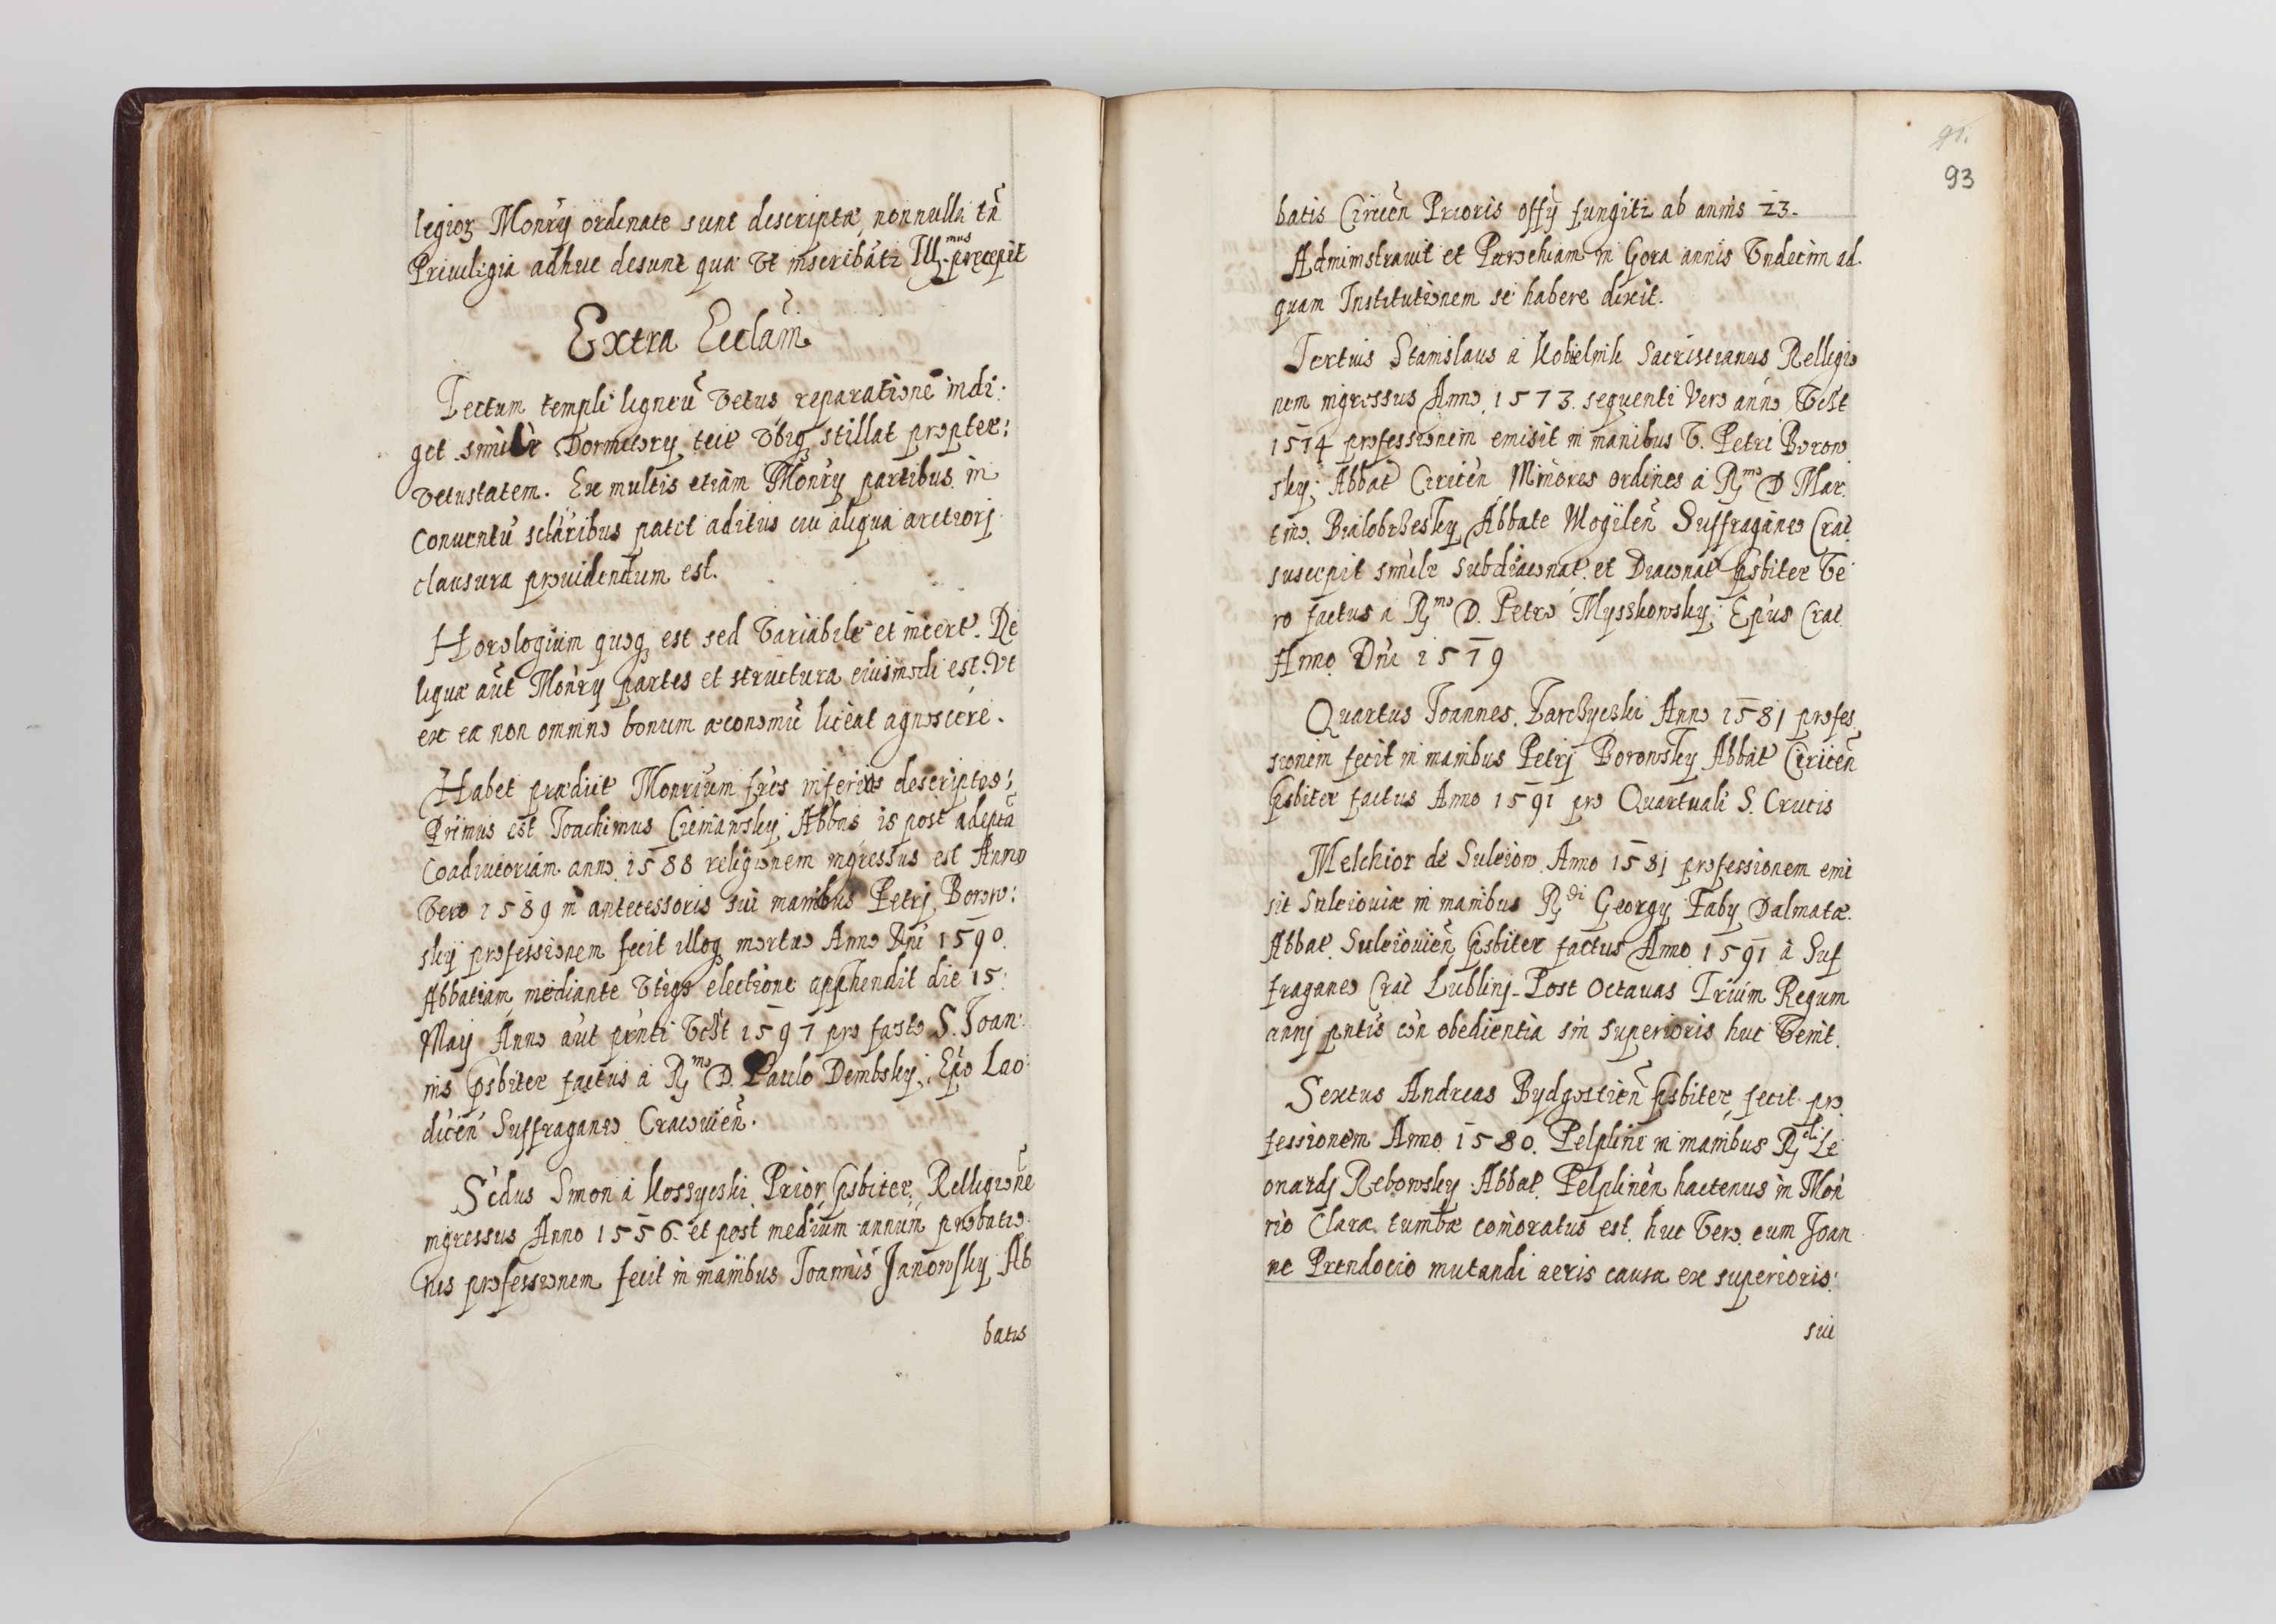 legioꝝ Monrÿ ordinate sunt descriptæ, nonnulla tñ
Priuilegia adhuc desunt quæ vt inscribãtr Ill.mus præcepit
Extra Ecclãm
Tectum templi ligneũ vetus reparatione indi:
get similr Dormitorÿ, teit vbiq; stillat propter:
vetustatem. Ex multis etiam Monrÿ partibus in
Conuentũ sclãribus patet aditus cui aliqua arctiorj
clausura prouidendum est.
Horologium quoq; est sed Variabile et incert. Re
liquæ aũt Monrÿ partes et structura eiusmodi est. Vt
ex ea non omnino bonum œconomũ liceat agnoscere.
Habet prædict Monrium frẽs inferius descriptos:
Primus est Joachimus Ciemiawskÿ Abbas is post adeptã
Coadiutoriam anno 1588 religionem ingressus est Anno
Vero 1589 in antecessoris sui manibus Petrj Borow:
skÿ professionem fecit illoq; mortuo Anno Dni 1590.
Abbatiam, mediante vtiqs electione apphendit die 15:
Maÿ Anno aũt prnti Vclt 1597 pro facto S. Joan:
nis Psbiter factus a R.mo D. Paulo Dembskj, Epo Lao
dicen Suffraganeo Cracouieñ.
Scdus Simon a Koszyczki Prior Psbiter Relligionẽ
ingressus Anno 1556. et post medium annũn probatio
nis professionem fecit in manibus Joannis Janowsky Ab
batis
91.
93
batis Ciricẽn Prioris offÿ fungitr ab annis 23.
Administrauit et Parochiam in Gora annis Vndecim ad
quam Institutionem se habere dixit.
Tertius Stanislaus a Kobielnik Sacristianus Relligio
nem ingressus Anno 1573. sequenti Vero anno Vclt
1574 professionem emisit in manibus V. Petri Borow
skÿ Abbat Ciricẽn Minores ordines a R.mo D Mar
tino Bialobrzeskÿ Abbate Mogileñ Suffraganeo Crac
suscepit similr subdiaconat. et Diaconat Psbiter Ve
ro factus a R.mo D. Petro Myszkowskÿ Epus Crac.
Anno Dni 1579
Quartus Joannes Tarczyczki Anno 1581 profes
sionem fecit in manibus Petrj Borowskÿ Abbat Ciriceñ
Psbiter factus Anno 1591 pro Quartuali S. Crucis
Melchior de Suleiow Anno 1581 professionem emi
sit Suleiouiæ in manibus R.di Georgÿ Fabÿ Dalmatæ.
Abbat. Suleiouieñ Psbiter factus Anno 1591 à Suf
fraganeo Crac Lublinj Post Octauas Trium Regum
annj pntis cũn obedientia sin superioris huc venit.
Sextus Andreas Bydgostieñ Psbiter, fecit pro
fessionem Anno 1580. Pelpline in manibus R.di Le
onardj Rebowskÿ Abbat. Pelplinẽn hactenus in Mon
rio Claræ tumbæ comoratus est. huc Vero cum Joan
ne Prendocio mutandi aeris causa ex superioris:
sui